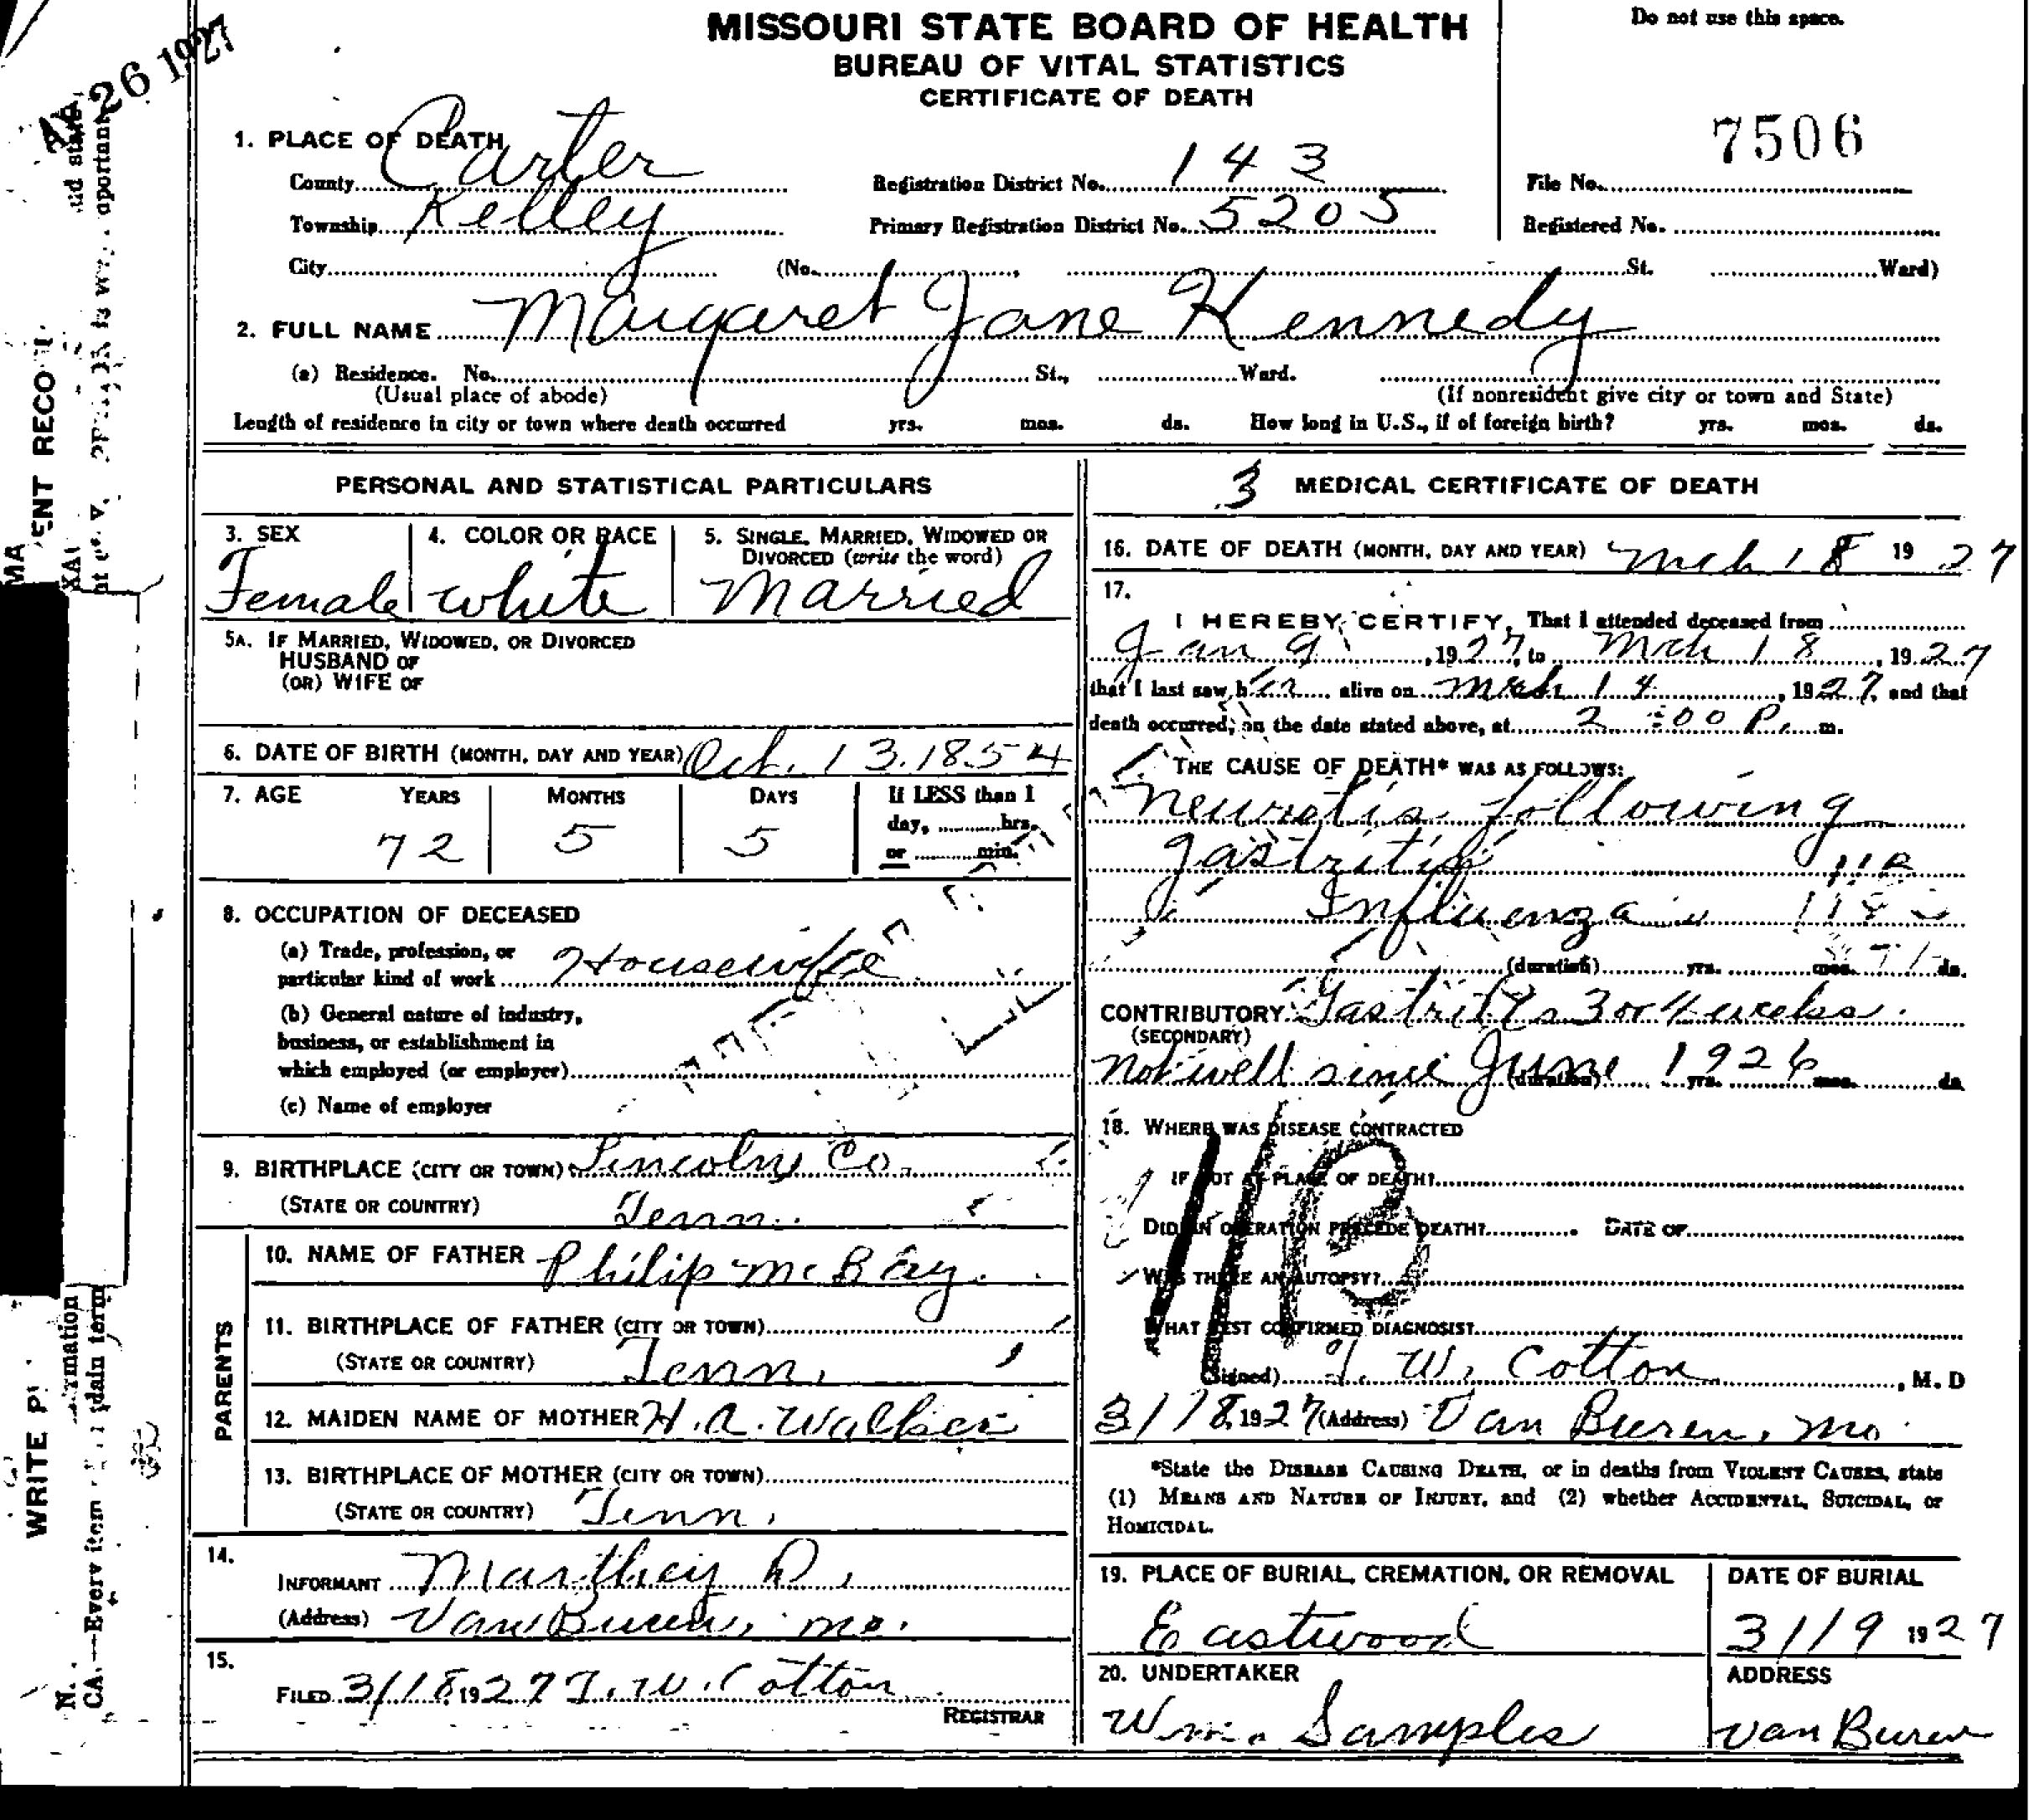 26 1927
MISSOURI STATE BOARD OF HEALTH
BUREAU OF VITAL STATISTICS
CERTIFICATE OF DEATH
Do not use this space.
7506
1. PLACE OF DEATH
County Carter Registration District No. 143 File No.
Township Kelley Primary Registration District No. 5205 Registered No.
City (No. , St. Ward)
2. FULL NAME Margaret Jane Kennedy
(a) Residence. No. St., Ward.
(Usual place of abode) (If nonresident give city or town and State)
Length of residence in city or town where death occurred yrs. mos. ds. How long in U.S., if of foreign birth? yrs. mos. ds.
PERSONAL AND STATISTICAL PARTICULARS
3. SEX 4. COLOR OR RACE 5. SINGLE, MARRIED, WIDOWED OR
DIVORCED (write the word)
Female white Married
5A. IF MARRIED, WIDOWED, OR DIVORCED
HUSBAND OF
(OR) WIFE OF
6. DATE OF BIRTH (MONTH, DAY AND YEAR) Oct. 13. 1854
7. AGE YEARS MONTHS DAYS If LESS than 1
day, hrs.
72 5 5 or min.
8. OCCUPATION OF DECEASED
(a) Trade, profession, or
particular kind of work Housewife
(b) General nature of industry,
business, or establishment in
which employed (or employer)
(c) Name of employer
9. BIRTHPLACE (CITY OR TOWN) Lincoln Co.
(STATE OR COUNTRY) Tenn.
PARENTS
10. NAME OF FATHER Philip McBay.
11. BIRTHPLACE OF FATHER (CITY OR TOWN)
(STATE OR COUNTRY) Tenn.
12. MAIDEN NAME OF MOTHER H. A. Walker
13. BIRTHPLACE OF MOTHER (CITY OR TOWN)
(STATE OR COUNTRY) Tenn.
14.
INFORMANT Marthey D.
(Address) Van Buren, Mo.
15.
FILED 3/18, 1927 T. W. Cotton
REGISTRAR
3 MEDICAL CERTIFICATE OF DEATH
16. DATE OF DEATH (MONTH, DAY AND YEAR) Mch 18 1927
17.
I HEREBY CERTIFY, That I attended deceased from
Jan 9, 1927, to Mch 18, 1927
that I last saw her alive on Mch 14, 1927, and that
death occurred, on the date stated above, at 2:00 P. m.
THE CAUSE OF DEATH* WAS AS FOLLOWS:
following
Gastritis 11B
Influenza
(duration) yrs. mos. ds.
CONTRIBUTORY Gastritis 3 or 4 weeks
(SECONDARY)
not well since June 1926
(duration) yrs. mos. ds.
18. WHERE WAS DISEASE CONTRACTED
IF NOT AT PLACE OF DEATH?
DID AN OPERATION PRECEDE DEATH? DATE OF
WAS THERE AN AUTOPSY?
WHAT TEST CONFIRMED DIAGNOSIS?
11B
(Signed) T. W. Cotton, M. D
3/18, 1927 (Address) Van Buren, Mo
*State the DISEASE CAUSING DEATH, or in deaths from VIOLENT CAUSES, state
(1) MEANS AND NATURE OF INJURY, and (2) whether ACCIDENTAL, SUICIDAL, or
HOMICIDAL.
19. PLACE OF BURIAL, CREMATION, OR REMOVAL DATE OF BURIAL
Eastwood 3/19 1927
20. UNDERTAKER ADDRESS
Wm. Samples Van Buren